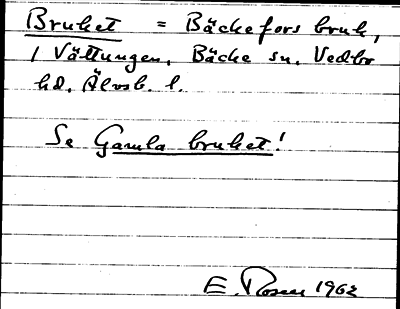 Bruket = Bäckefors bruk,
i Vättungen, Bäcke sn, Vedbo
hd, Älvsb. l.
Se Gamla bruket!
E. Rosen 1962